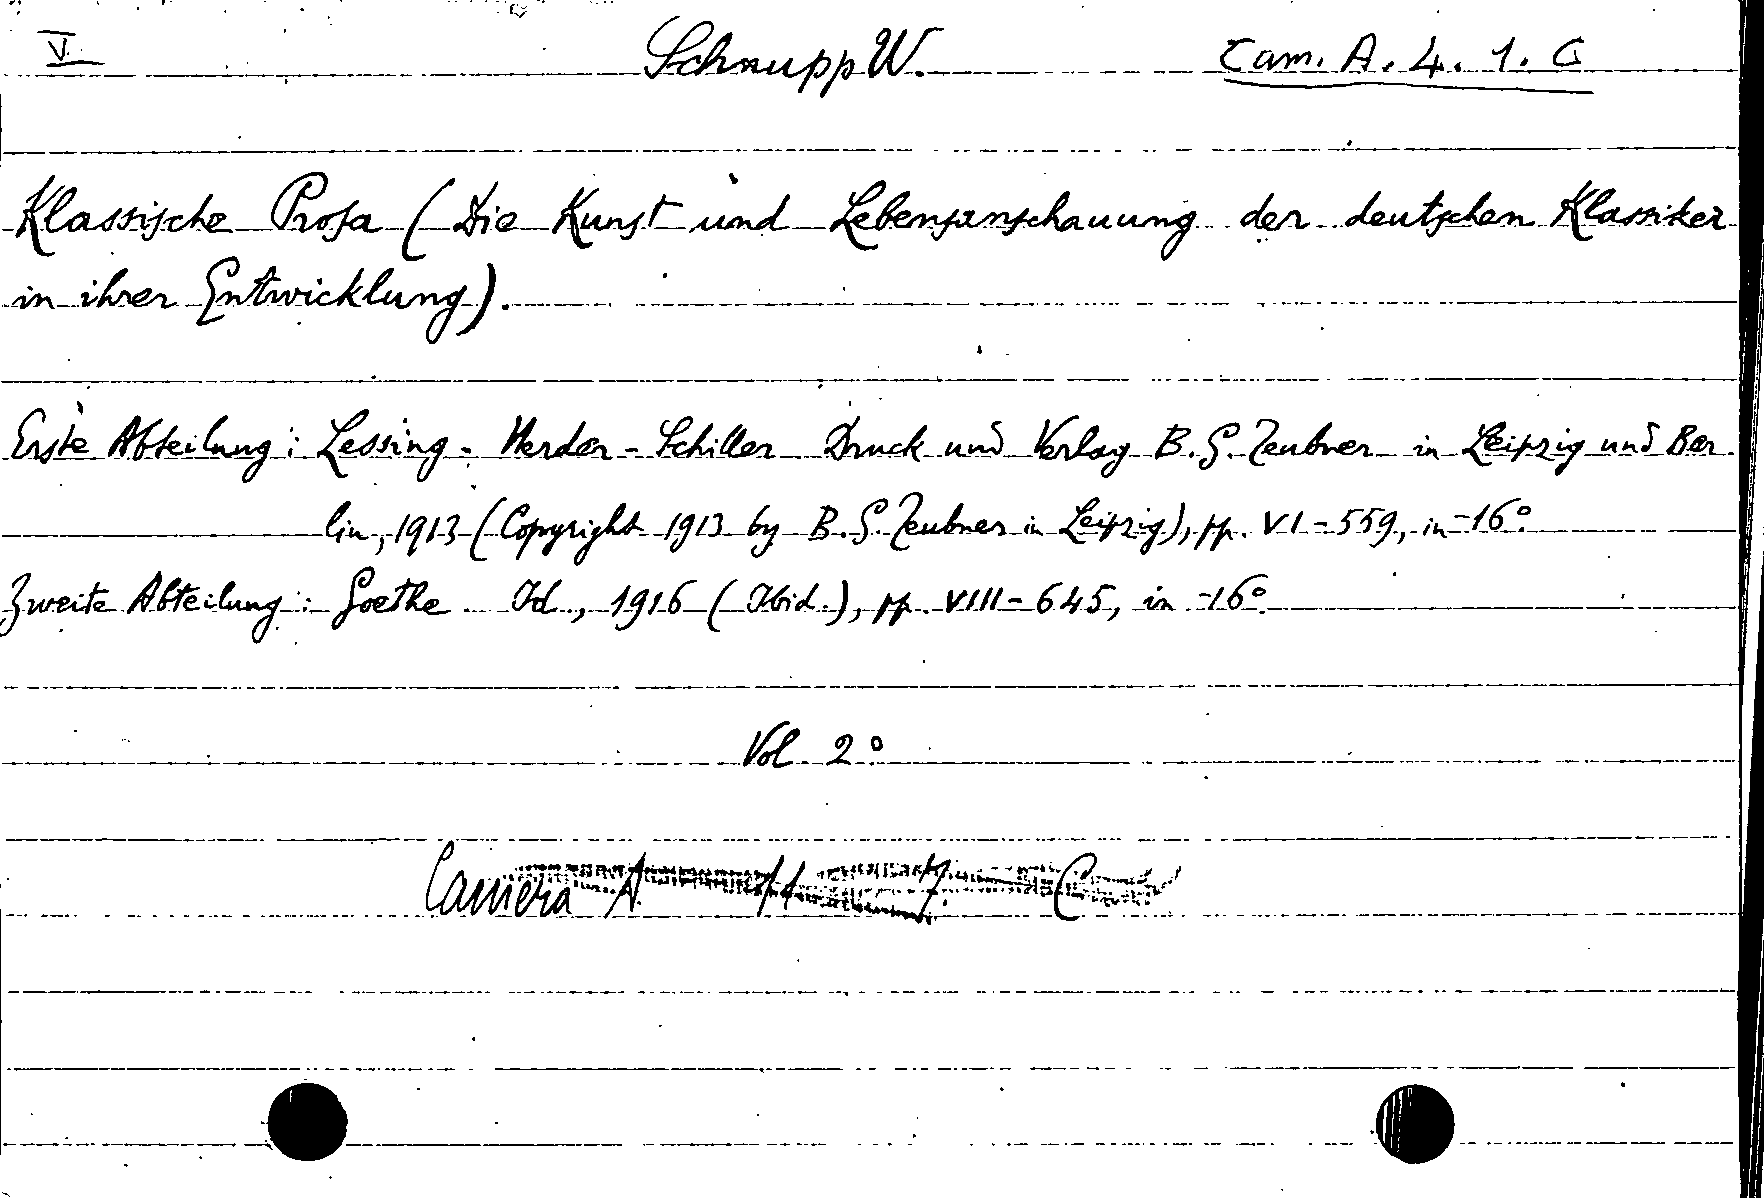 V. Schnupp W. Cam. A. 4. 1. C
Klassische Prosa (Die Kunst und Lebensanschauung der deutschen Klassiker
in ihrer Entwicklung).
Erste Abteilung: Lessing - Herder - Schiller Druck und Verlag B. G. Teubner in Leipzig und Ber-
lin, 1913 (Copyright 1913 by B. G. Teubner in Leipzig), pp. VI-559, in-16°.
Zweite Abteilung: Goethe Id., 1916 (Ibid.), pp. VIII-645, in -16°.
Vol. 2°
Camera A. C